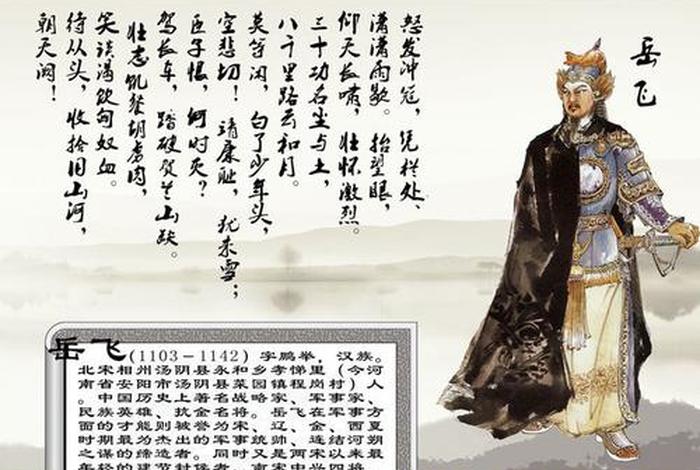 岳飞
怒发冲冠，凭栏处、
潇潇雨歇。抬望眼，
仰天长啸，壮怀激烈。
三十功名尘与土，
八千里路云和月。
莫等闲，白了少年头，
空悲切！靖康耻，犹未雪；
臣子恨，何时灭？
驾长车，踏破贺兰山缺。
壮志饥餐胡虏肉，
笑谈渴饮匈奴血。
待从头，收拾旧山河，
朝天阙！
岳飞(1103-1142)字鹏举，汉族。
北宋相州汤阴县永和乡孝悌里（今河
南省安阳市汤阴县菜园镇程岗村）人
。中国历史上著名战略家、军事家、
民族英雄、抗金名将。岳飞在军事方
面的才能则被誉为宋、辽、金、西夏
时期最为杰出的军事统帅、连结河朔
之谋的缔造者。同时又是两宋以来最
年轻的建节封侯者。南宋中兴四将